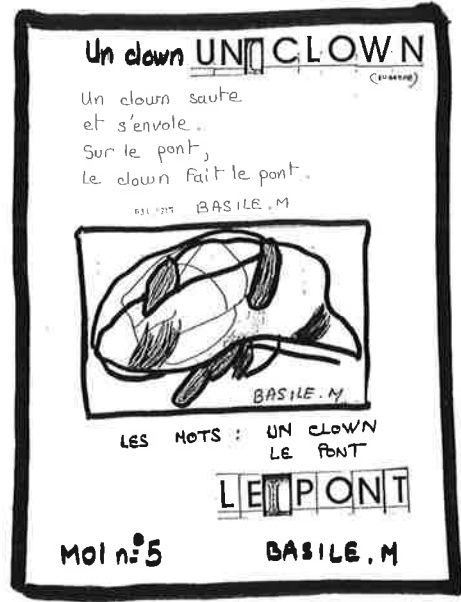 Un clown UN CLOWN
Un clown saute
et s'envole.
Sur le pont,
Le clown fait le pont.
BASILE.M
BASILE.M
LES MOTS : UN CLOWN
LE PONT
LE PONT
MOI n°5 BASILE.M